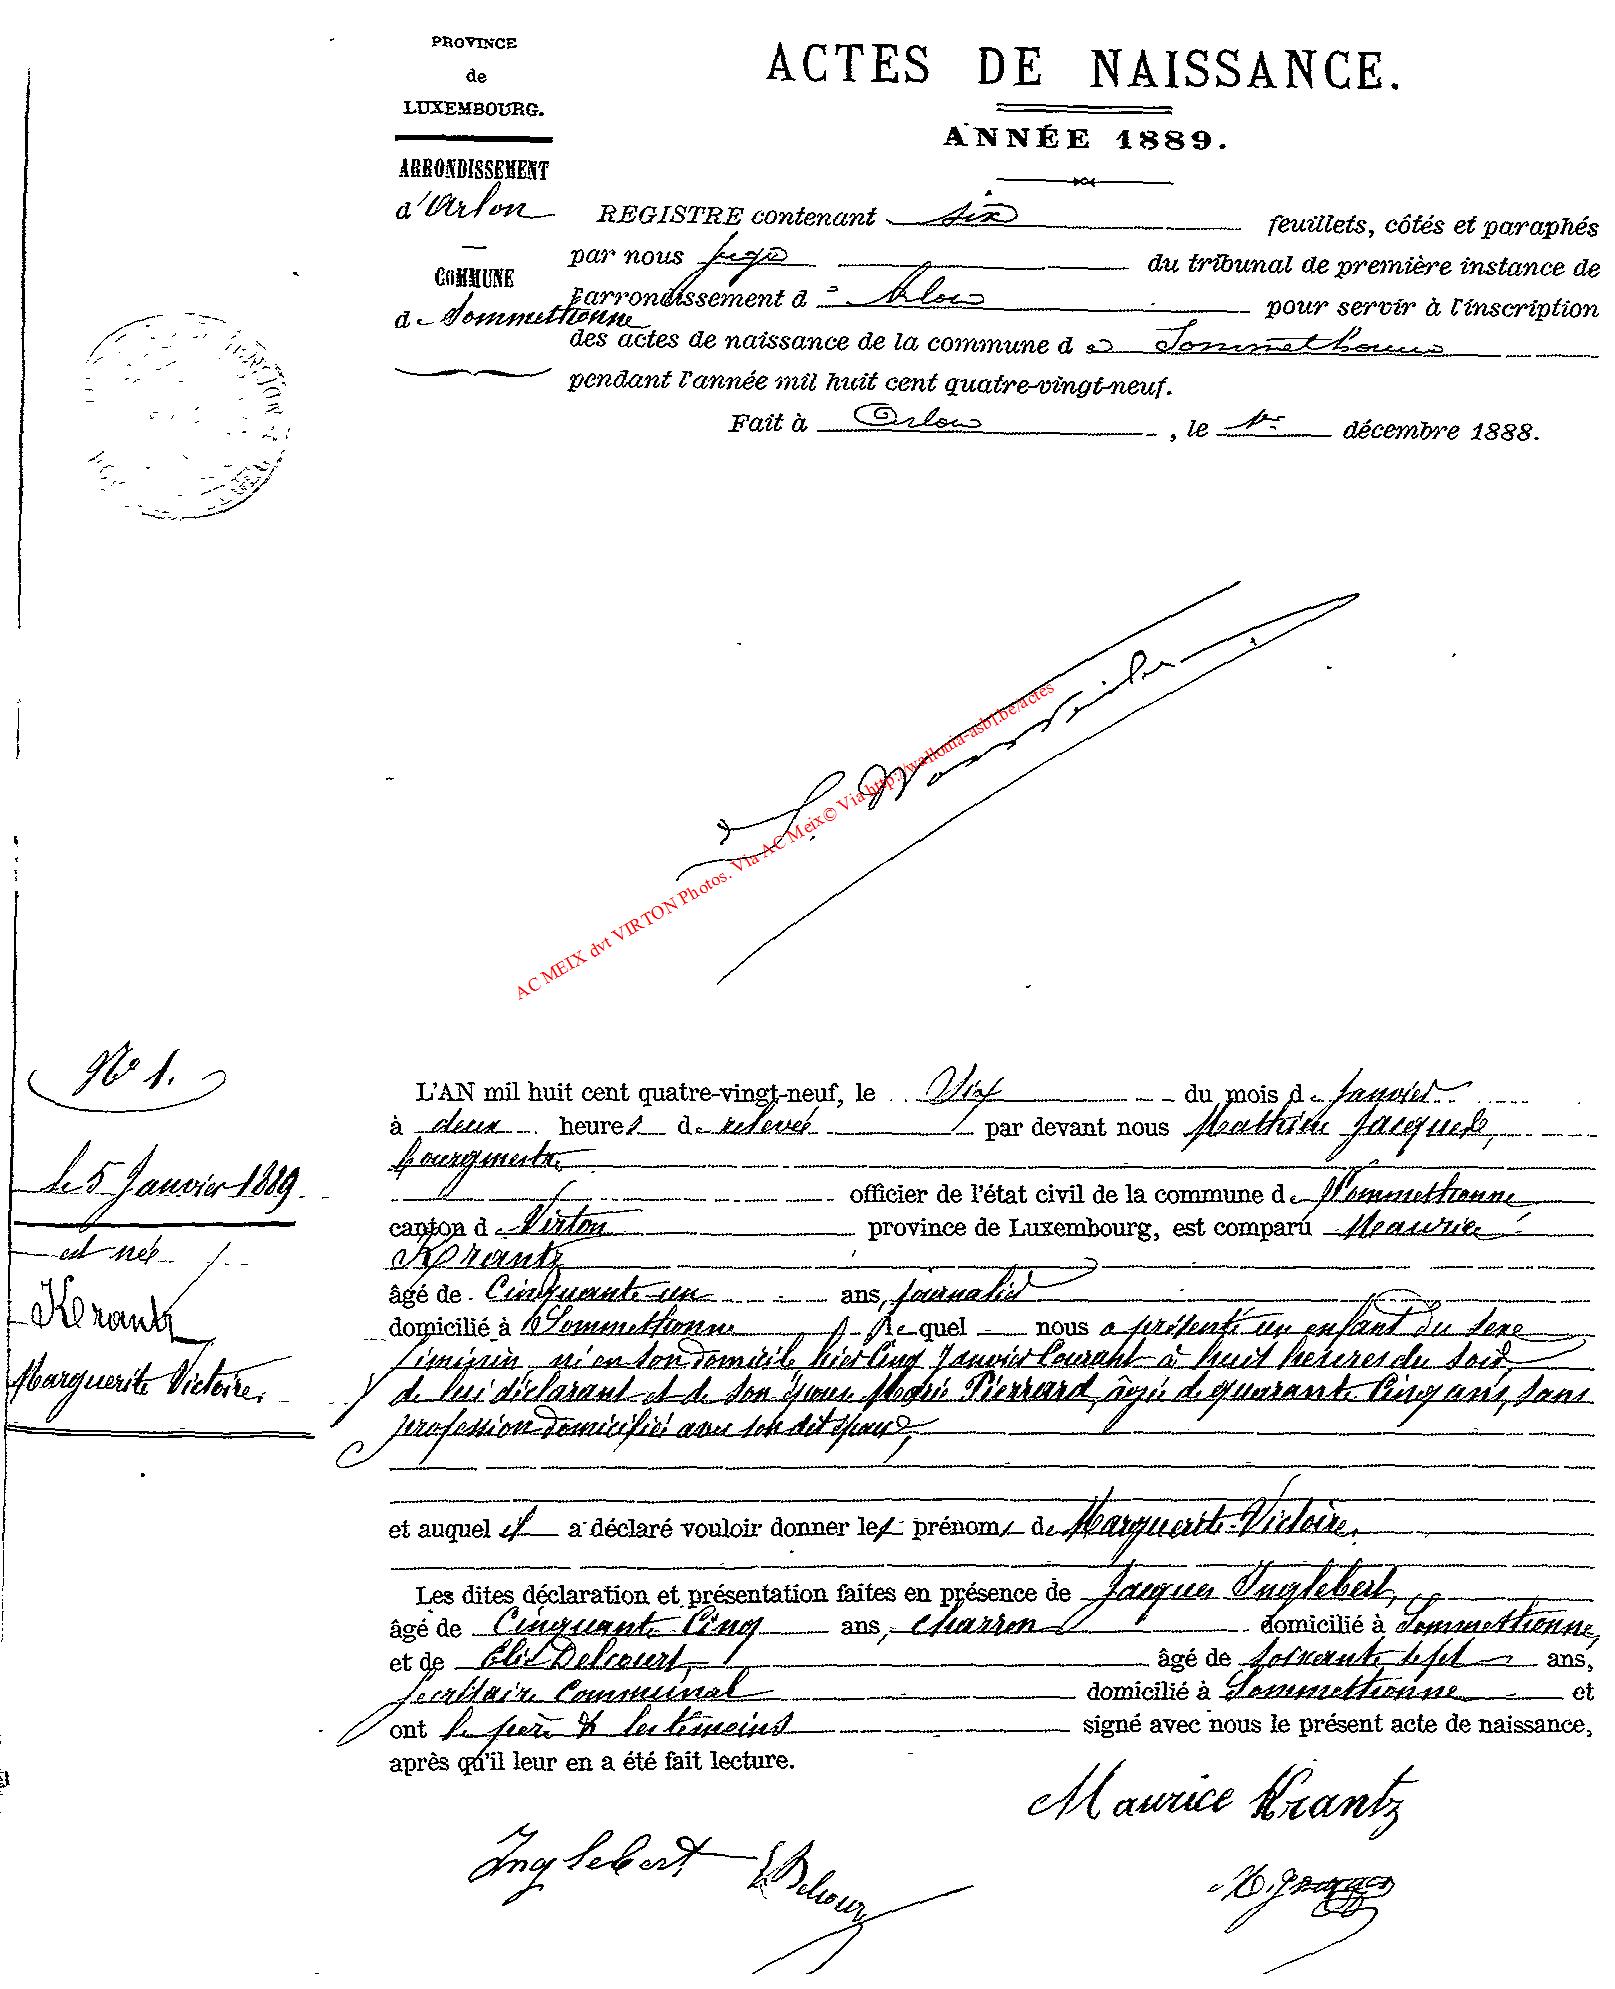 PROVINCE
de
LUXEMBOURG.
ARRONDISSEMENT
d'Arlon
COMMUNE
de Sommethonne
ACTES DE NAISSANCE.
ANNÉE 1889.
REGISTRE contenant six feuillets, côtés et paraphés
par nous juge du tribunal de première instance de
l'arrondissement d'Arlon pour servir à l'inscription
des actes de naissance de la commune de Sommethonne
pendant l'année mil huit cent quatre-vingt-neuf.
Fait à Arlon, le 1er décembre 1888.
AC MEIX dvt VIRTON Photos. Via AC Meix© Via http://wallonia-asbl.be/actes
N° 1.
le 5 Janvier 1889
est née
Krantz
Marguerite Victoire.
L'AN mil huit cent quatre-vingt-neuf, le Six du mois de Janvier
à deux heures de relevée par devant nous Mathieu Jacques,
bourgmestre
officier de l'état civil de la commune de Sommethonne
canton de Virton province de Luxembourg, est comparu Maurice
Krantz
âgé de Cinquante-un ans, journalier
domicilié à Sommethonne lequel nous a présenté un enfant du sexe
féminin né en son domicile hier Cinq Janvier Courant à huit heures du soir,
de lui déclarant et de son épouse Marie Pierrard, âgée de quarante Cinq ans, sans
profession domiciliée avec son dit époux,
et auquel il a déclaré vouloir donner les prénoms de Marguerite-Victoire.
Les dites déclaration et présentation faites en présence de Jacques Inglebert,
âgé de Cinquante Cinq ans, charron domicilié à Sommethonne,
et de Elie Delcourt, âgé de soixante sept ans,
Secrétaire Communal domicilié à Sommethonne et
ont le père & les témoins signé avec nous le présent acte de naissance,
après qu'il leur en a été fait lecture.
Maurice Krantz
Inglebert